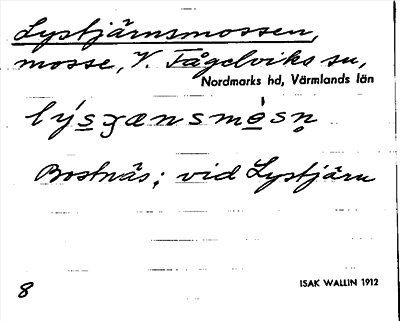 Lystjärnsmossen,
mosse, V. Fågelviks sn,
Nordmarks hd, Värmlands län
lýsʒænsmòsn̥
Bostnäs; vid Lystjärn
8
ISAK WALLIN 1912